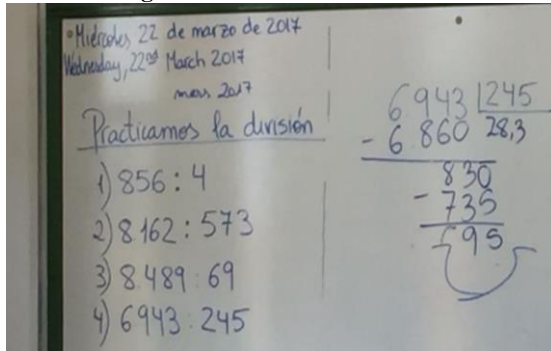 Miércoles 22 de marzo de 2017
Wednesday, 22nd March 2017
2017
Practicamos la división
1) 856 : 4
2) 8.162 : 573
3) 8.489 : 69
4) 6943 : 245
6943 245
- 6.860 28,3
830
- 735
95